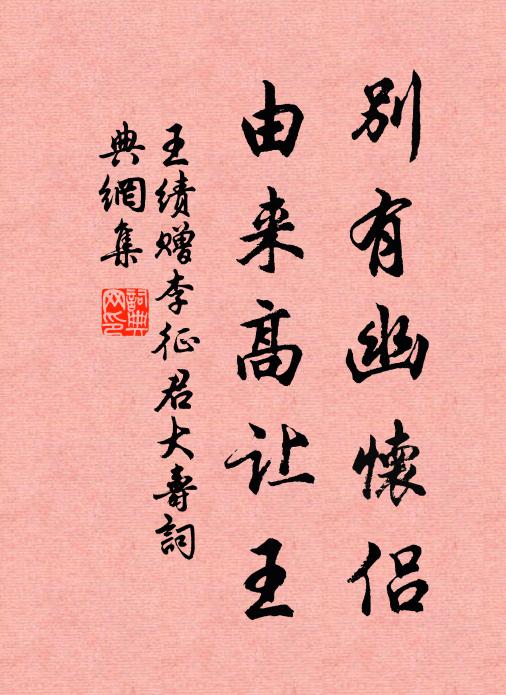 别有幽懷侣
由来高让王
王绩赠李征君大壽詞
典網集
詞典網印